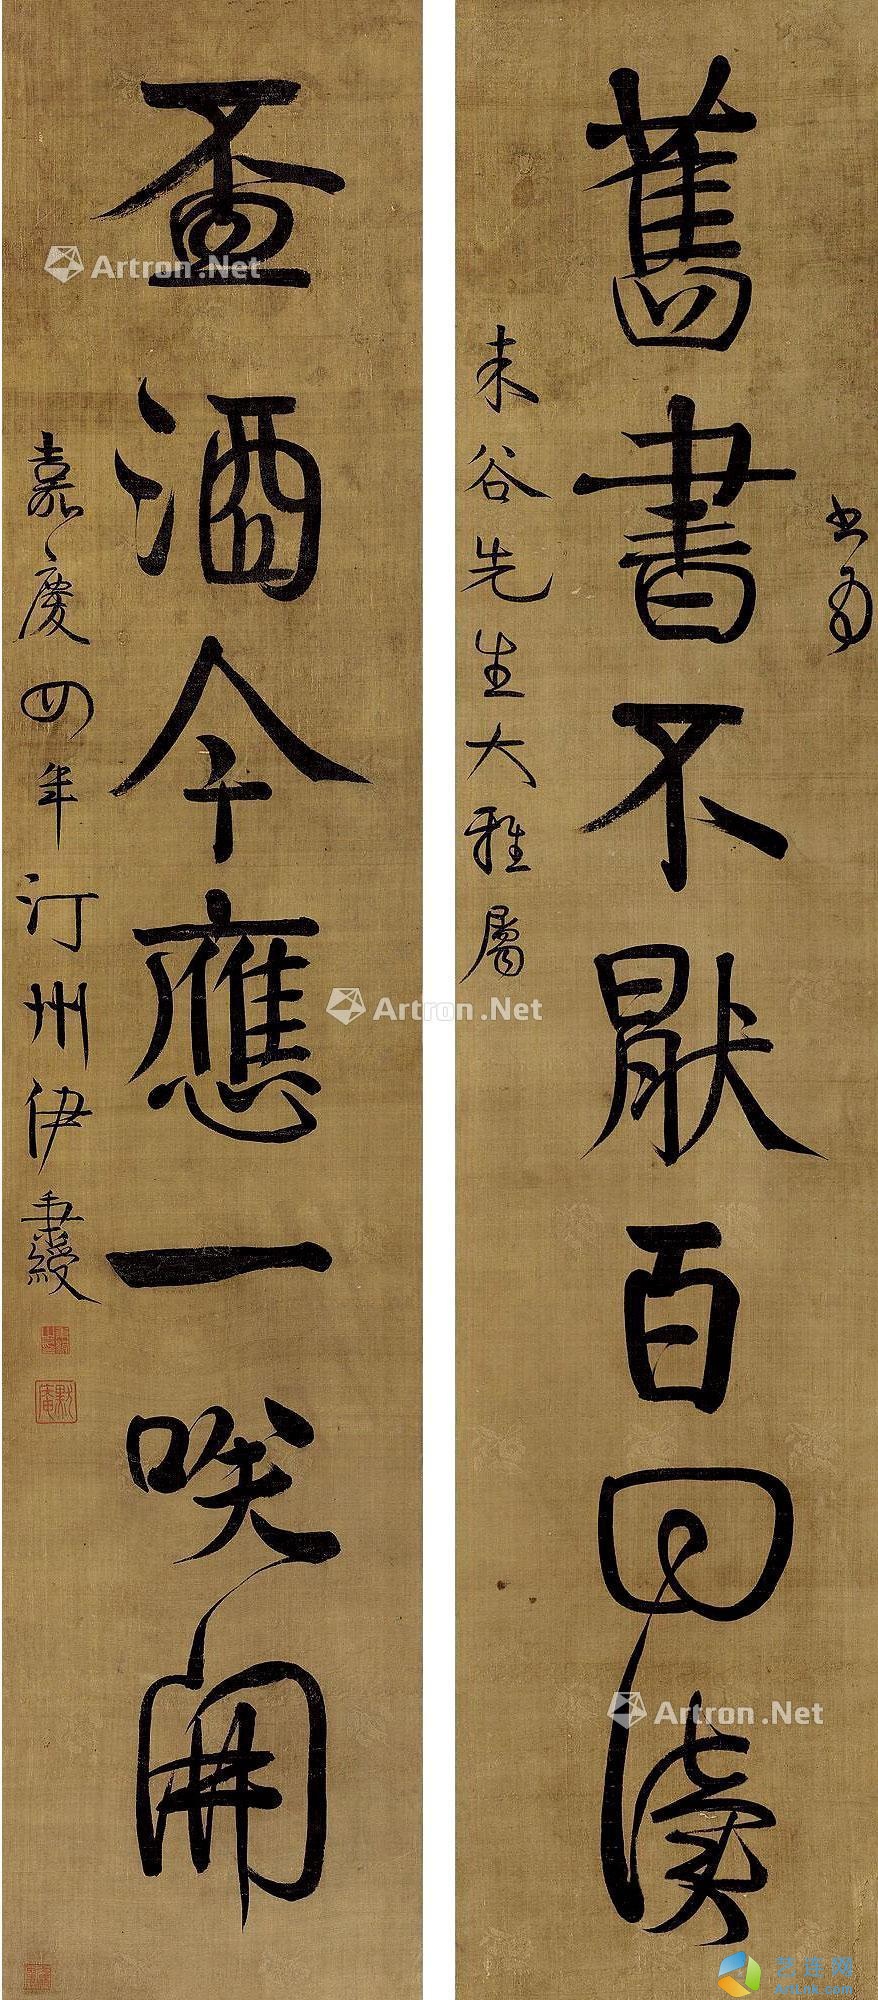 書為
舊書不厭百回讀
未谷先生大雅屬
盃酒今應一咲開
嘉慶四年汀州伊秉綬
Artron.Net
Artron.Net
Artron.Net
艺连网
ArtLink.com